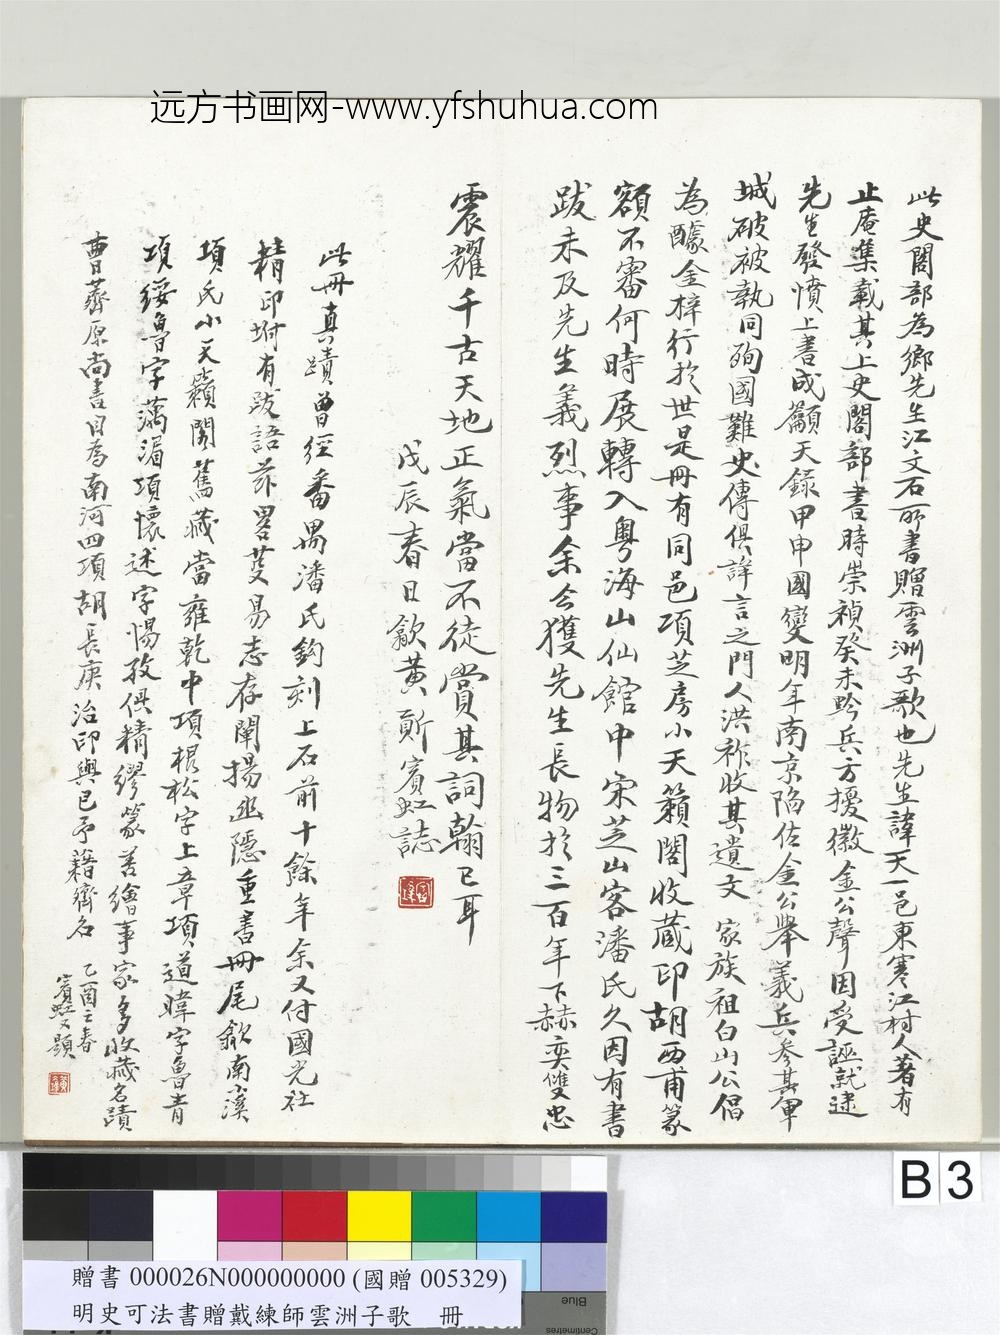 远方书画网-www.yfshuhua.com
此史閣部為鄉先生江文石所書贈雲洲子歌也先生諱天一邑東寒江村人著有
止庵集載其上史閣部書時崇禎癸未黔兵方擾徽金公聲因受誣就逮
先生發憤上書成籲天錄甲申國變明年南京陷佐金公舉義兵參其軍
城破被執同殉國難史傳俱詳言之門人洪祚收其遺文家族祖白山公倡
為醵金梓行於世是冊有同邑項芝房小天籟閣收藏印胡西甫篆
額不審何時展轉入粵海山仙館中宋芝山客潘氏久因有書
跋未及先生義烈事余今獲先生長物於三百年下赫奕雙忠
震耀千古天地正氣當不徒賞其詞翰已耳
戊辰春日歙黃賓虹誌
此冊真蹟曾經番禺潘氏鈎刻上石前十餘年余又付國光社
精印坿有跋語茲畧芟易志存闡揚幽隱重書冊尾歙南小溪
項氏小天籟閣舊藏當雍乾中項棍松字上章項道暐字魯青
項綏魯字藕湄項懷述字惕孜俱精繆篆善繪事家多收藏名蹟
曹薺原尚書目為南河四項胡長庚治印與巳予藉齊名
乙酉之春
賓虹又題
B 3
贈書 000026N000000000 (國贈 005329)
明史可法書贈戴練師雲洲子歌 冊
Blue
Centimetres